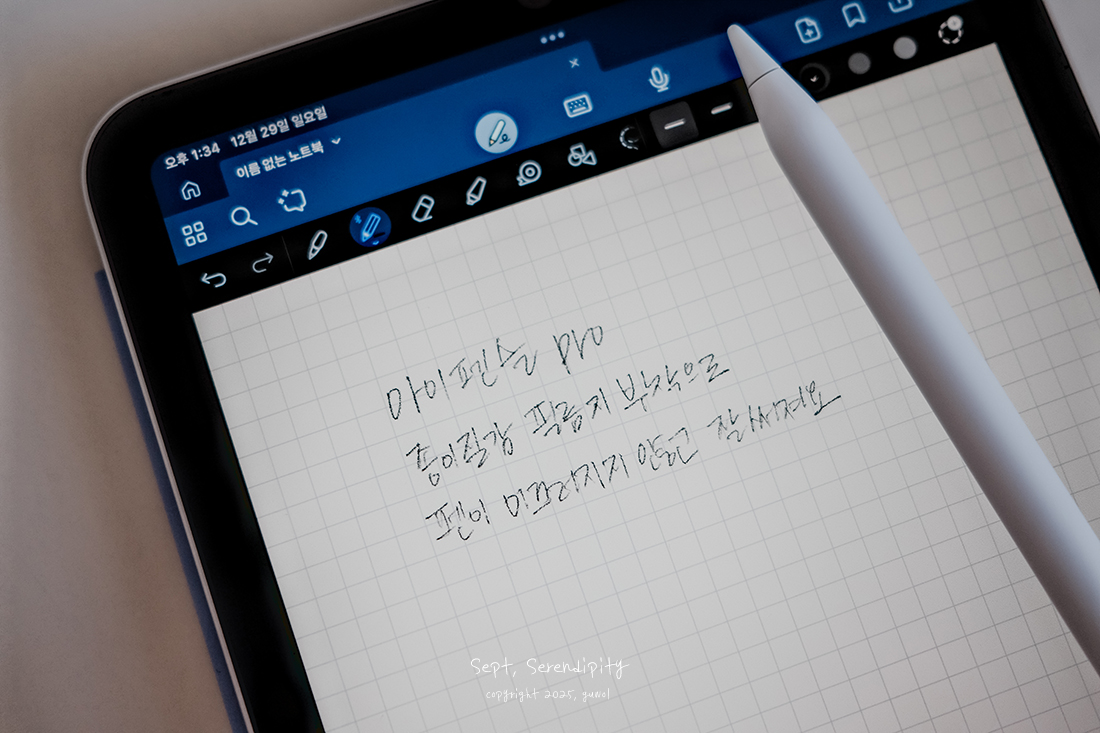 오후 1:34 12월 29일 일요일
이름 없는 노트북
아이펜슬 pro
종이질감 필름지 부착으로
펜이 미끄러지지 않고 잘써져요
Sept, Serendipity
copyright 2025, yuwol